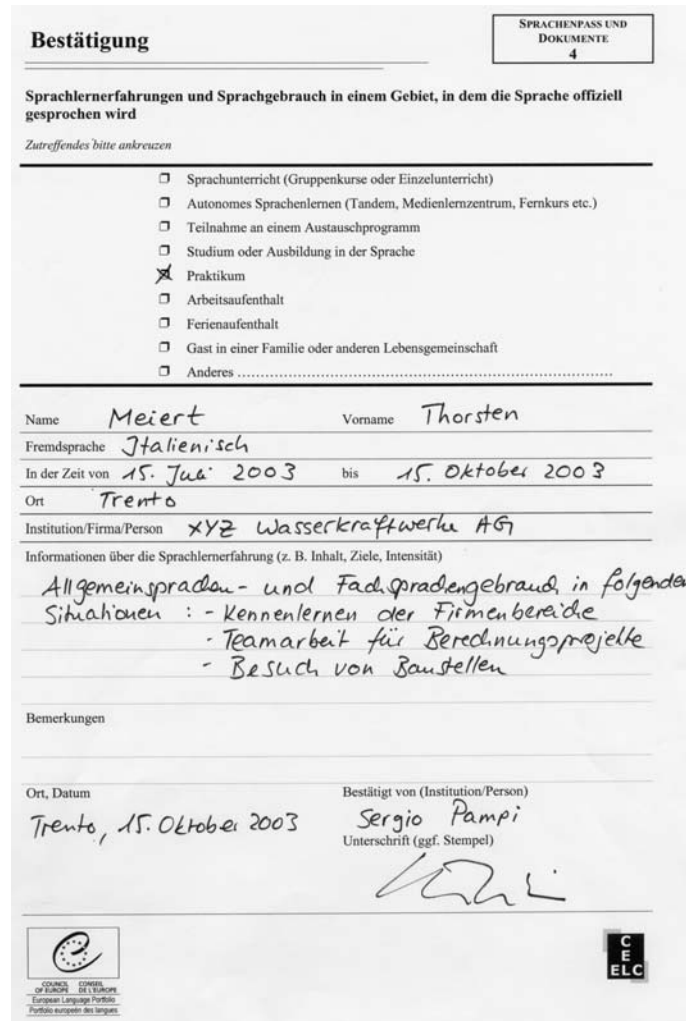 Bestätigung
SPRACHENPASS UND
DOKUMENTE
4
Sprachlernerfahrungen und Sprachgebrauch in einem Gebiet, in dem die Sprache offiziell
gesprochen wird
Zutreffendes bitte ankreuzen
Sprachunterricht (Gruppenkurse oder Einzelunterricht)
Autonomes Sprachenlernen (Tandem, Medienlernzentrum, Fernkurs etc.)
Teilnahme an einem Austauschprogramm
Studium oder Ausbildung in der Sprache
Praktikum
Arbeitsaufenthalt
Ferienaufenthalt
Gast in einer Familie oder anderen Lebensgemeinschaft
Anderes ........................................................................
Name Meiert Vorname Thorsten
Fremdsprache Italienisch
In der Zeit von 15. Juli 2003 bis 15. Oktober 2003
Ort Trento
Institution/Firma/Person XYZ Wasserkraftwerke AG
Informationen über die Sprachlernerfahrung (z. B. Inhalt, Ziele, Intensität)
Allgemeinsprachen- und Fachsprachengebrauch in folgenden
Situationen : - Kennenlernen der Firmenbereiche
- Teamarbeit für Berechnungsprojekte
- Besuch von Baustellen
Bemerkungen
Ort, Datum Bestätigt von (Institution/Person)
Trento, 15. Oktober 2003 Sergio Pampi
Unterschrift (ggf. Stempel)
COUNCIL OF EUROPE CONSEIL DE L'EUROPE
European Language Portfolio
Portfolio européen des langues
C
E
ELC